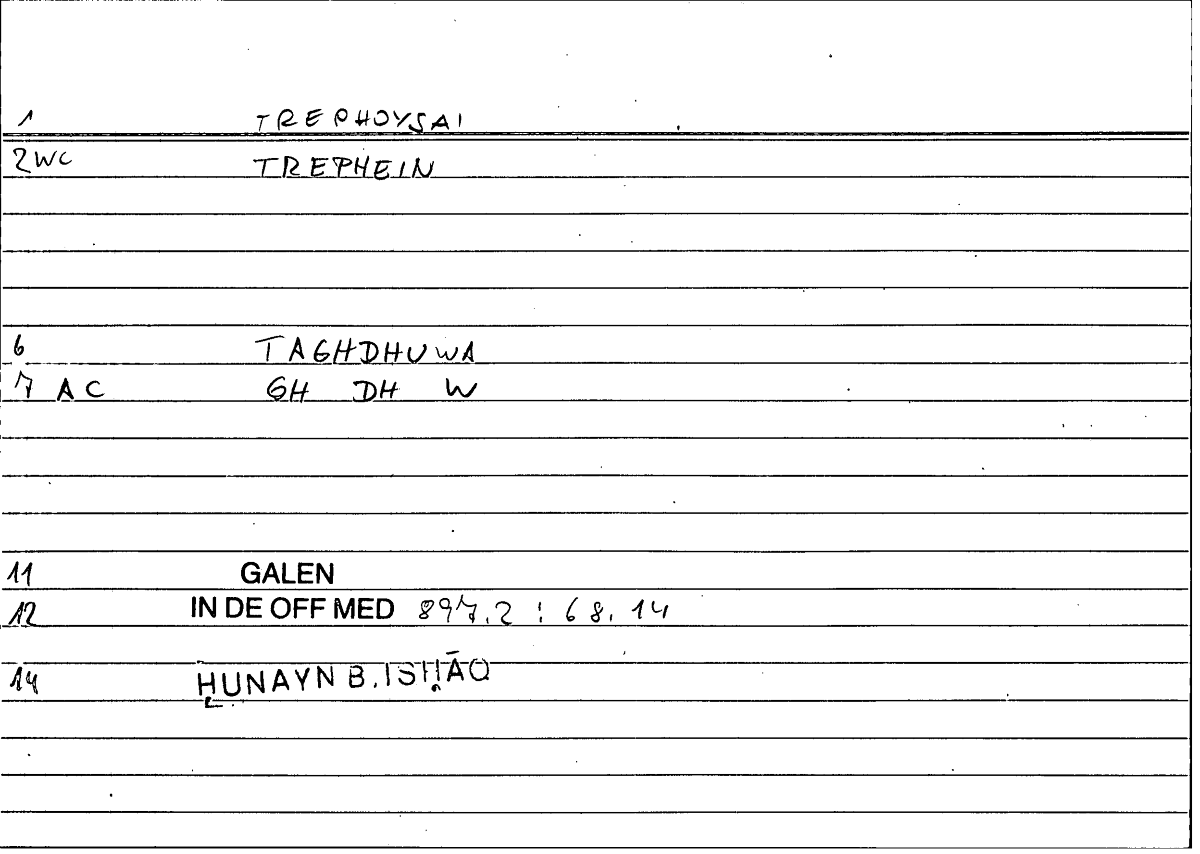 1 TREPHOYSAI
2WC TREPHEIN
6 TAGHDHUWA
7 AC GH DH W
11 GALEN
12 IN DE OFF MED 897.2 : 68.14
14 ḤUNAYN B. ISḤĀQ